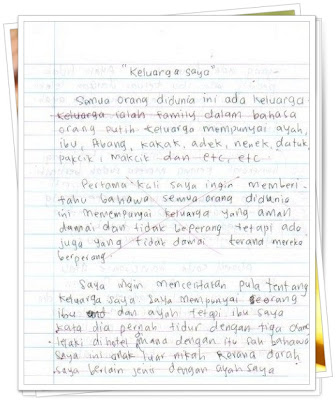 "Keluarga saya"
Semua orang didunia ini ada keluarga.
Keluarga ialah family dalam bahasa
orang putih. Keluarga mempunyai ayah,
ibu, Abang, kakak, adek, nenek, datuk,
pakcik, makcik dan etc, etc
Pertama kali saya ingin memberi-
tahu bahawa semua orang didunia
ini memempunyai keluarga yang aman
damai dan tidak beperang tetapi ado
juga yang tidak damai mereka
berperang.
Saya ingin menceritakan pula tentang
Keluarga saya. Saya mempunyai seorang
ibu dan ayah. Tetapi, ibu saya
kata dia pernah tidur dengan tiga
lelaki di hotel mana dengan itu sah bahawa
saya ini anak luar nikah kerana darah
saya berlain jenis dengan ayah saya